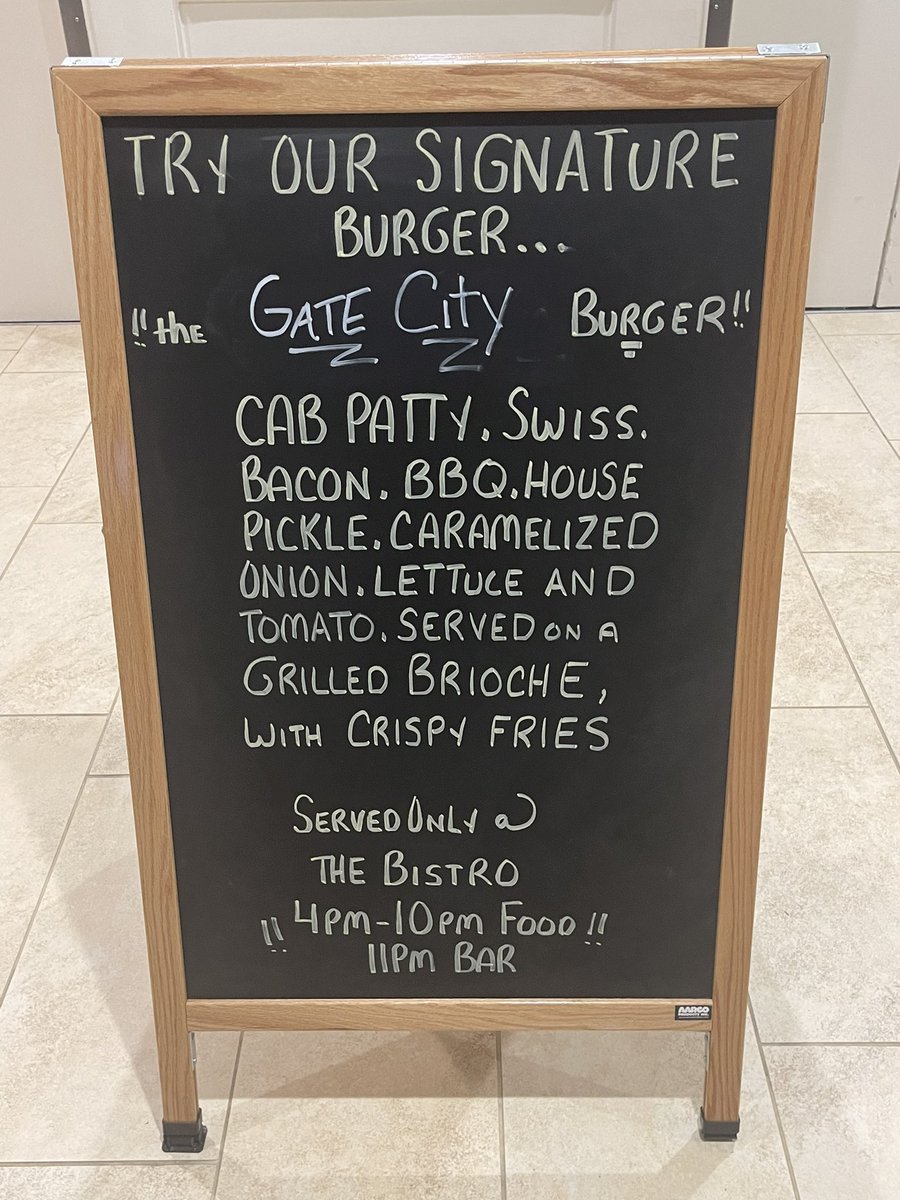 TRY OUR SIGNATURE
BURGER...
!!the GATE City BURGER!!
CAB PATTY. SWISS.
BACON. BBQ. HOUSE
PICKLE. CARAMELIZED
ONION. LETTUCE AND
TOMATO. SERVED ON A
GRILLED BRIOCHE,
WITH CRISPY FRIES
SERVED ONLY @
THE BISTRO
!! 4PM-10PM FOOD !!
11PM BAR
AARCO
PRODUCTS INC.